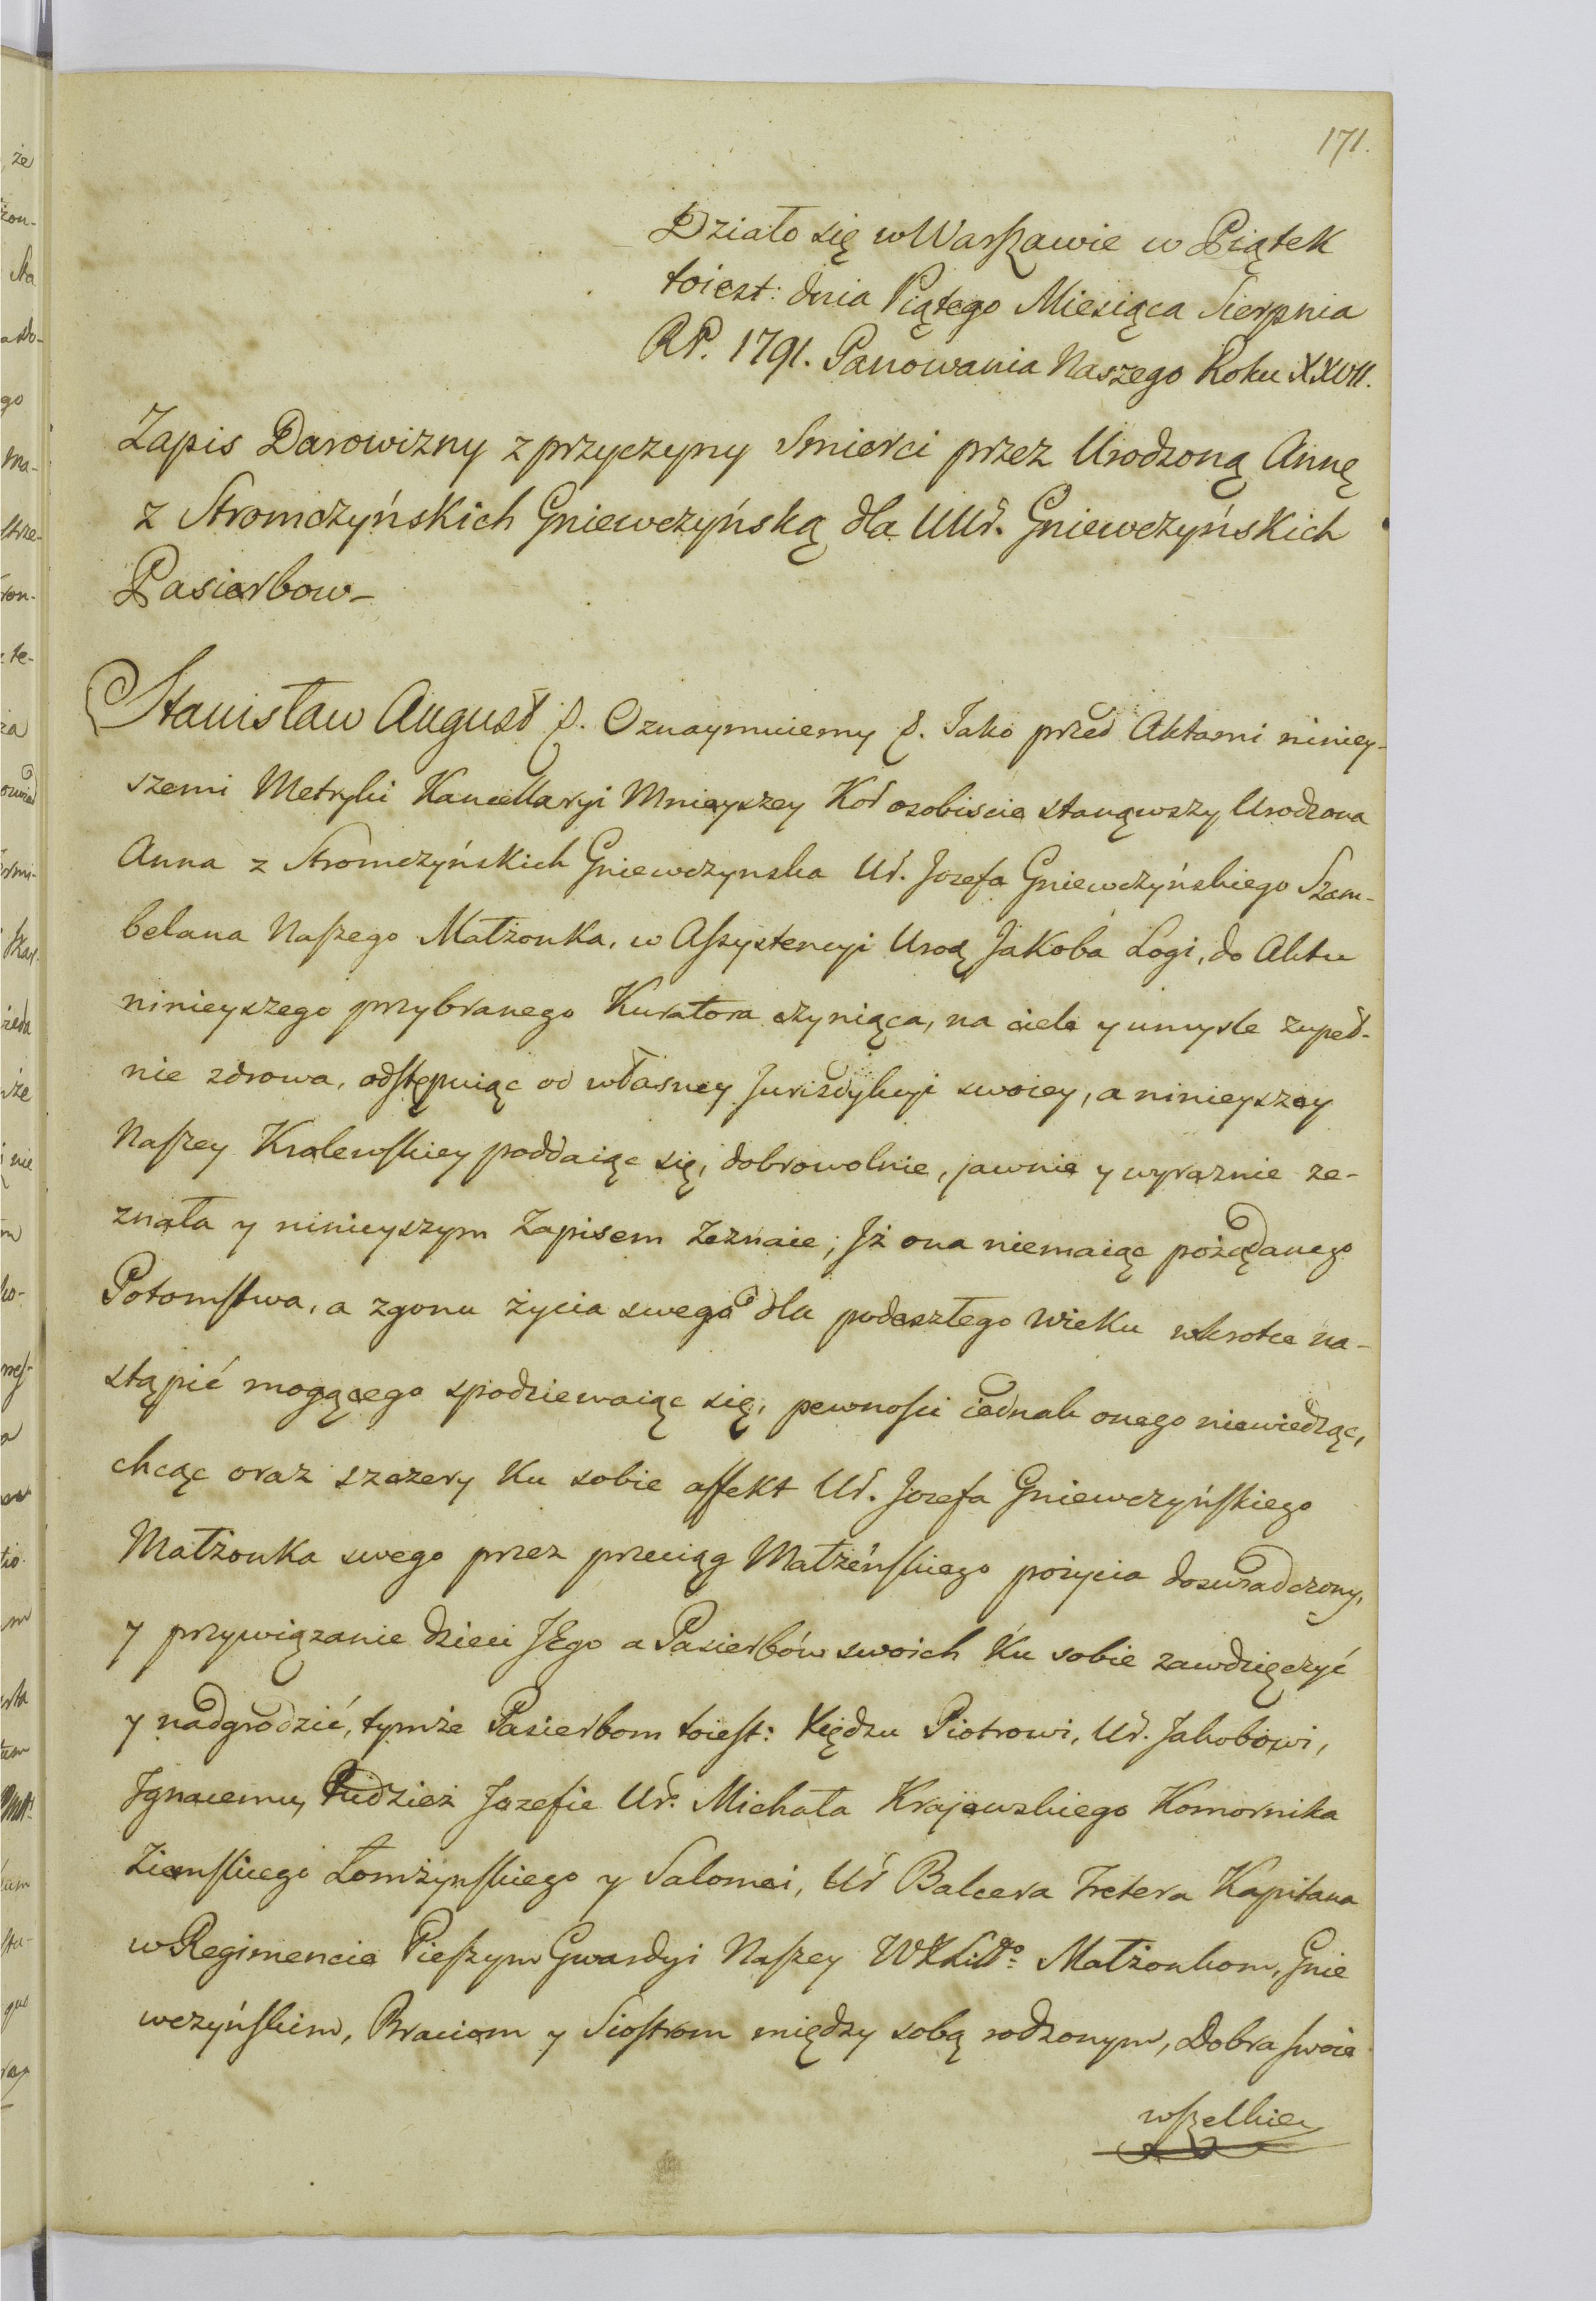 171.
Działo się w Warszawie w Piątek
toiest: dnia Piątego Miesiąca Sierpnia
RP. 1791. Panowania Naszego Roku XXVII.
Zapis Darowizny z przyczyny Smierci przez Urodzoną Annę
z Stromczyńskich Gniewczyńską dla UUr. Gniewczyńskich
Pasierbow
Stanisław August &. Oznaymuiemy &. Jako przed Aktami niniey-
szemi Metryki Kancellaryi Mnieyszey Kor osobiscie stanąwszy Urodzona
Anna z Stromczyńskich Gniewczynska Ur. Jozefa Gniewczyńskiego Szam-
belana Naszego Małżonka, w Assystencyi Urod Jakoba Logi, do Aktu
ninieyszego przybranego Kuratora czyniąca, na ciele y umysle zupeł-
nie zdrowa, odstępuiąc od własney Jurisdykcyi swoiey, a ninieyszey
Naszey Krolewskiey poddaiąc się, dobrowolnie, jawnie y wyraznie ze-
znała y ninieyszym Zapisem Zeznaie; Jż ona niemaiąc pożądanego
Potomstwa, a zgonu życia swego dla podeszłego wieku wkrotce na-
stąpić mogącego spodziewaiąc się, pewnosci iednak onego niewiedząc,
chcąc oraz szczery Ku sobie affekt Ur. Jozefa Gniewczyńskiego
Małżonka swego przez przeciąg Małżeńskiego pożycia doswiadczony,
y przywiązanie dzieci JEgo a Pasierbów swoich Ku sobie zawdzięczyć
y nadgrodzić, tymże Pasierbom toiest: Xiędzu Piotrowi, Ur. Jakobowi,
Jgnacemu, Tudzież Jozefie Ur. Michała Krajewskiego Komornika
Ziemskiego Łomżynskiego y Salomei, Ur Balcera Tretera Kapitana
w Regimencie Pieszym Gwardyi Naszey WXLitto: Małżonkom, Gnie
wczyńskim, Braciom y Siostrom między sobą rodzonym, Dobra swoie
wszelkie